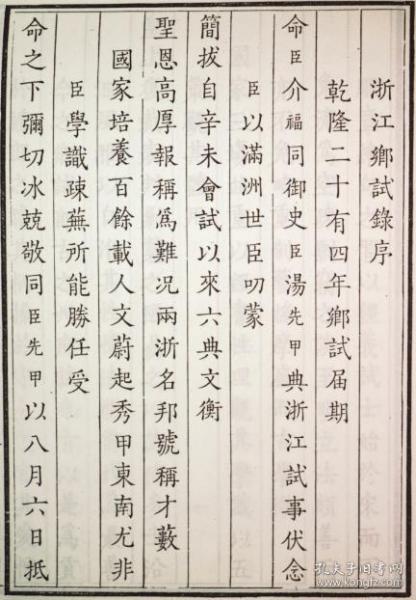 浙江鄉試錄序
乾隆二十有四年鄉試届期
命臣介福同御史臣湯先甲典浙江試事伏念
臣以滿洲世臣叨蒙
簡拔自辛未會試以來六典文衡
聖恩高厚報稱爲難况兩浙名邦號稱才藪
國家培養百餘載人文蔚起秀甲東南尤非
臣學識疎蕪所能勝任受
命之下彌切冰兢敬同臣先甲以八月六日抵
孔夫子旧书网